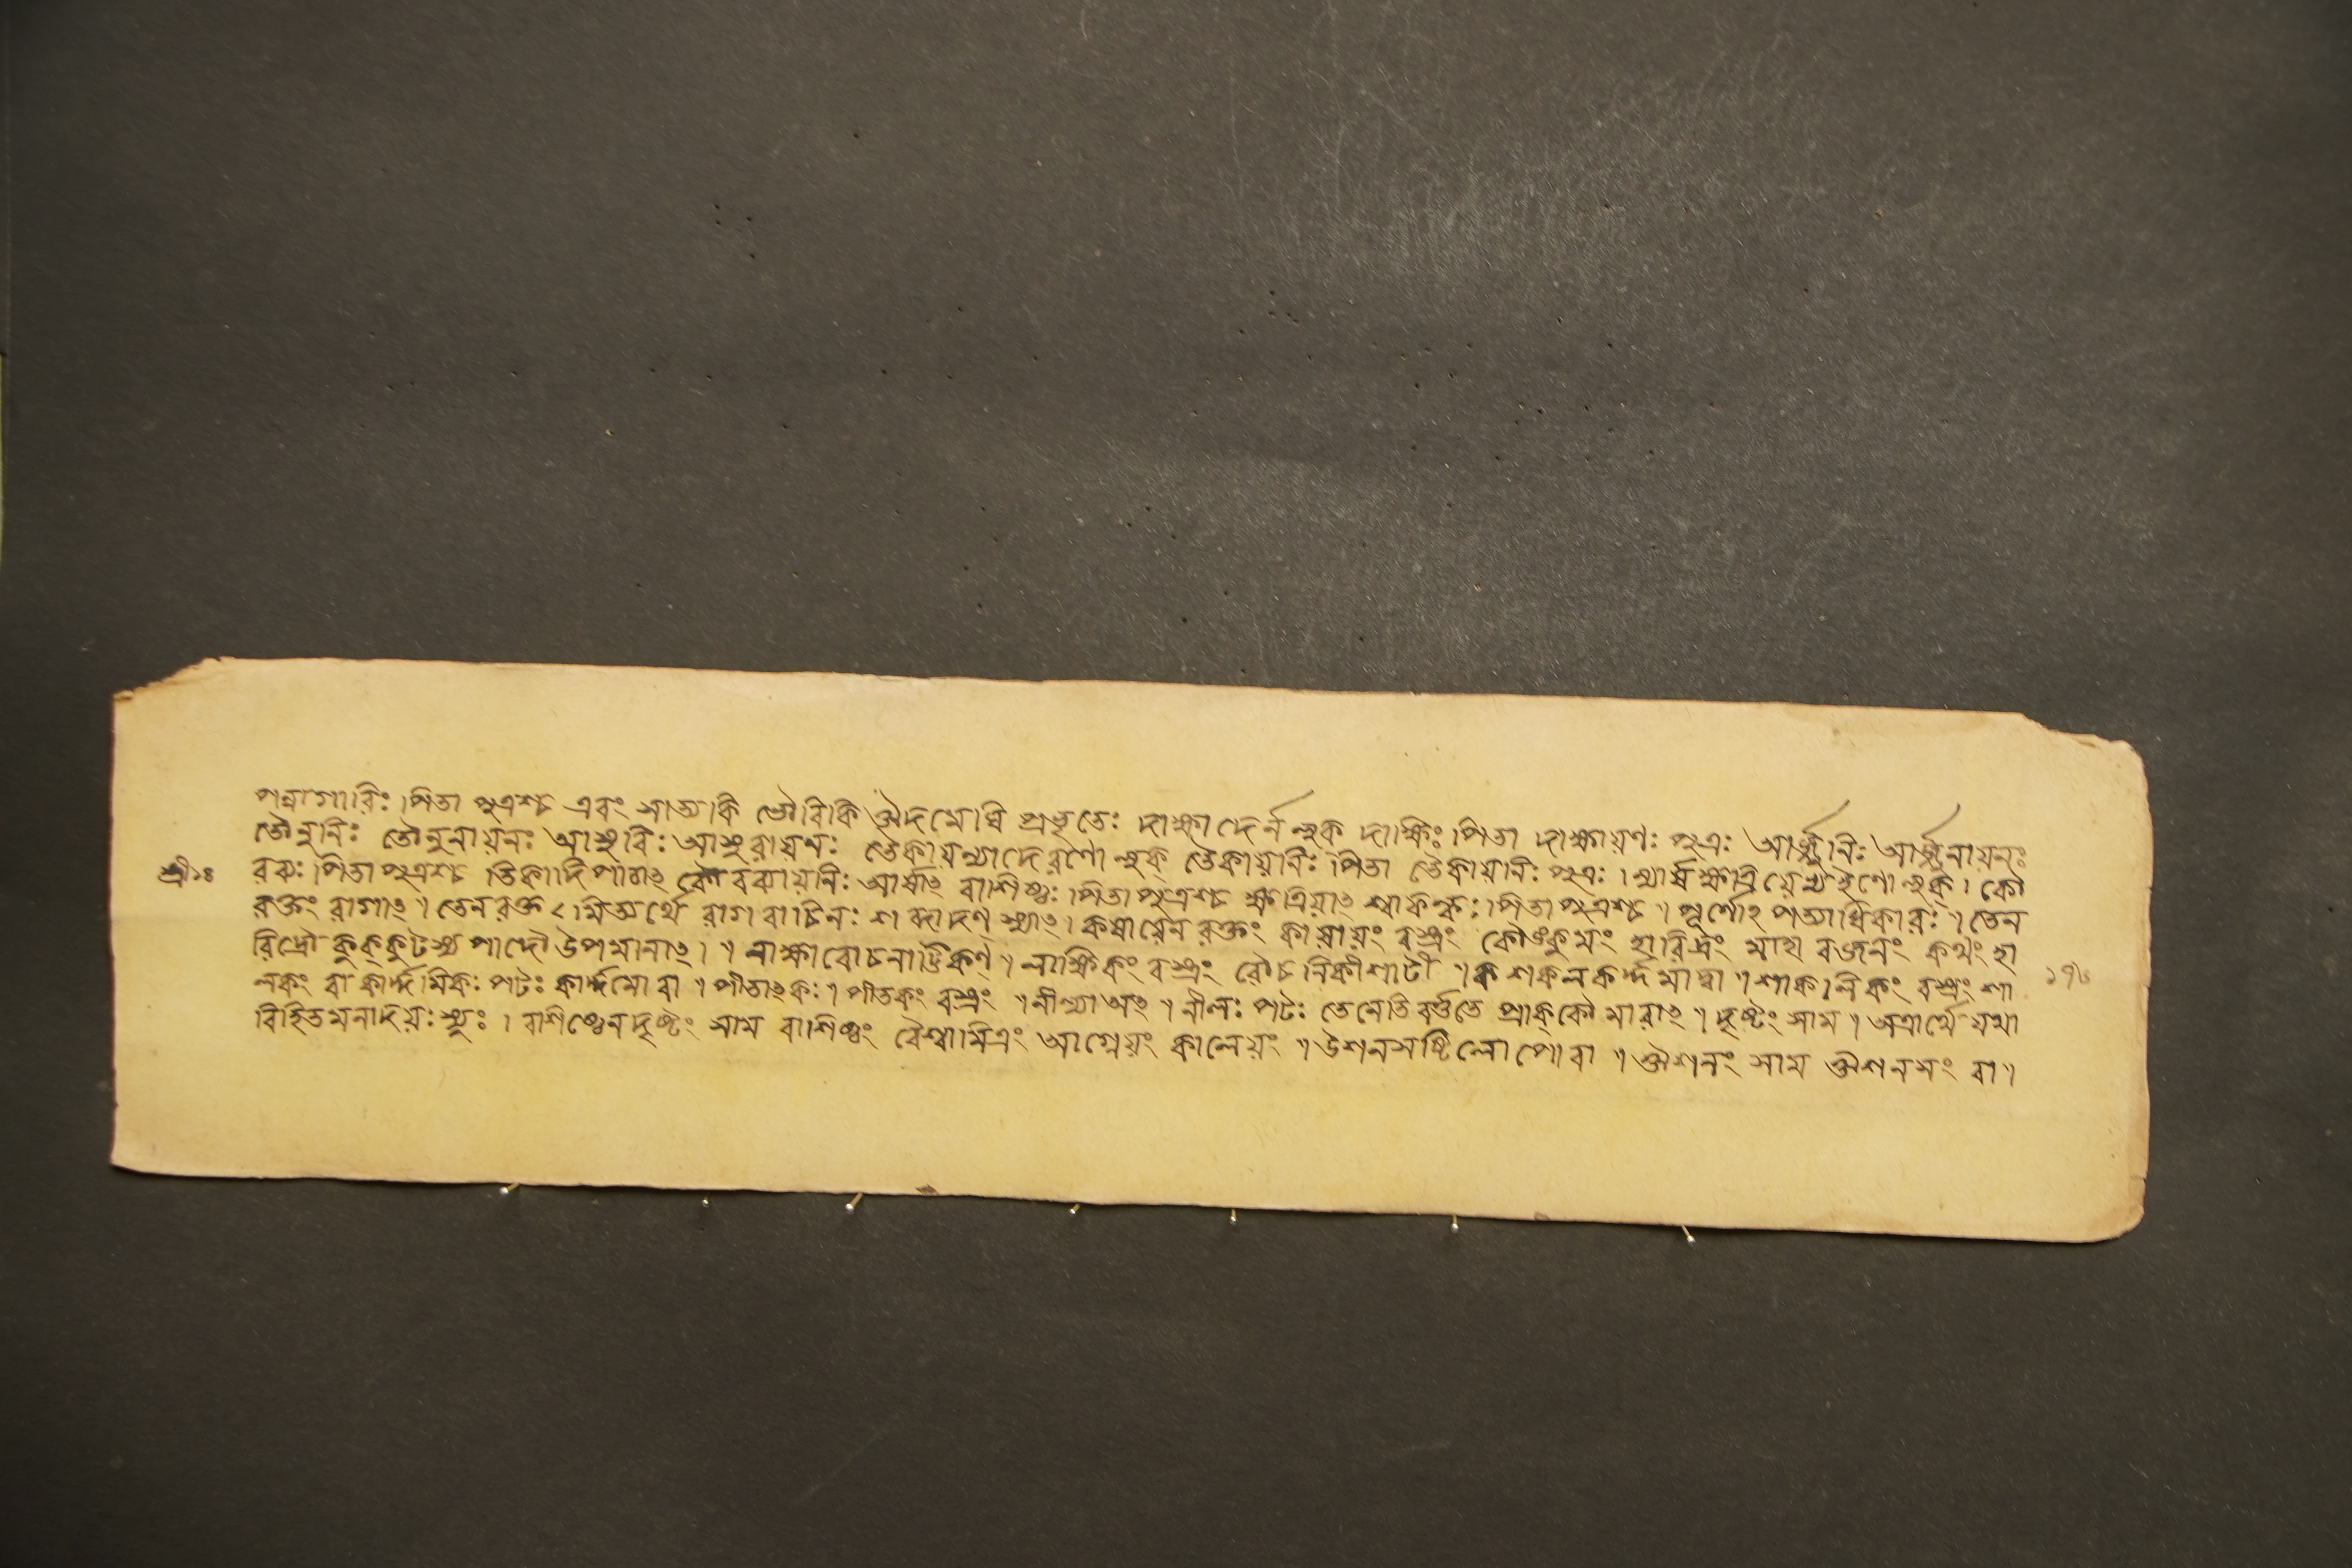 পন্নাগারিঃ।পিতা পুত্রশ্চ এবং সাত্যকি ভৌরিকি ঔদমেঘি প্রভৃতেঃ দাক্ষ্যাদের্ন লুক্ দাক্ষিঃ।পিতা দাক্ষায়ণঃ পুত্রঃ আর্জ্জুনিঃ আর্জ্জুনায়নঃ
তৌলুনিঃ তৌলুনায়নঃ আসুরিঃ আসুরায়ণঃ তৈকায়ন্যাদেরণো লুক্ তৈকায়ানিঃ পিতা তৈকায়ানিঃ পুত্রঃ। ণ্যার্ষক্ষত্রিয়েভ্যইণো লুক্। কৌ
শ্রীঃ
রব্যঃ।পিতাপুত্রশ্চ তিকাদিপাঠাৎ কৌরব্যায়ণিঃ আর্ষাৎ বাশিষ্ঠঃ।পিতাপুত্রশ্চ ক্ষত্রিয়াৎ শ্বাফল্কঃ।পিতাপুত্রশ্চ॥পূর্ণোঽপত্যাধিকারঃ॥তেন
রক্তং রাগাৎ॥তেনরক্তমিত্যর্থে রাগবাচিনঃ শব্দাদণ্ স্যাৎ।কষায়েন রক্তং কাষায়ং বস্ত্রং কৌঙ্কুমং হারিদ্রং মাহারজনং কথং হা
রিদ্রৌ কুক্কুটস্য পাদৌ উপমানাৎ।॥লাক্ষারোচনাট্টিকণ্॥লাক্ষিকং বস্ত্রং রৌচনিকীশাটী॥শকলকর্দ্দমাদ্বা॥শাকলিকং বস্ত্রং শা
১৭৬
লকং বা কার্দ্দমিকঃ পটঃ কার্দ্দমো বা॥পীতাৎকঃ॥পীতকং বস্ত্রং॥নীল্যাঅং॥নীলঃ পটঃ তেনেতিবর্ত্ততে প্রাক্কৌমারাৎ॥দৃষ্টং সাম॥অত্রার্থে যথা
বিহিতমনাদয়ঃ স্যুঃ।বাশিষ্ঠেনদৃষ্টং সাম বাশিষ্ঠং বৈশ্বামিত্রং আগ্নেয়ং কালেয়ং॥উশনসষ্টিলোপোবা॥ঔশনং সাম ঔশনসং বা॥